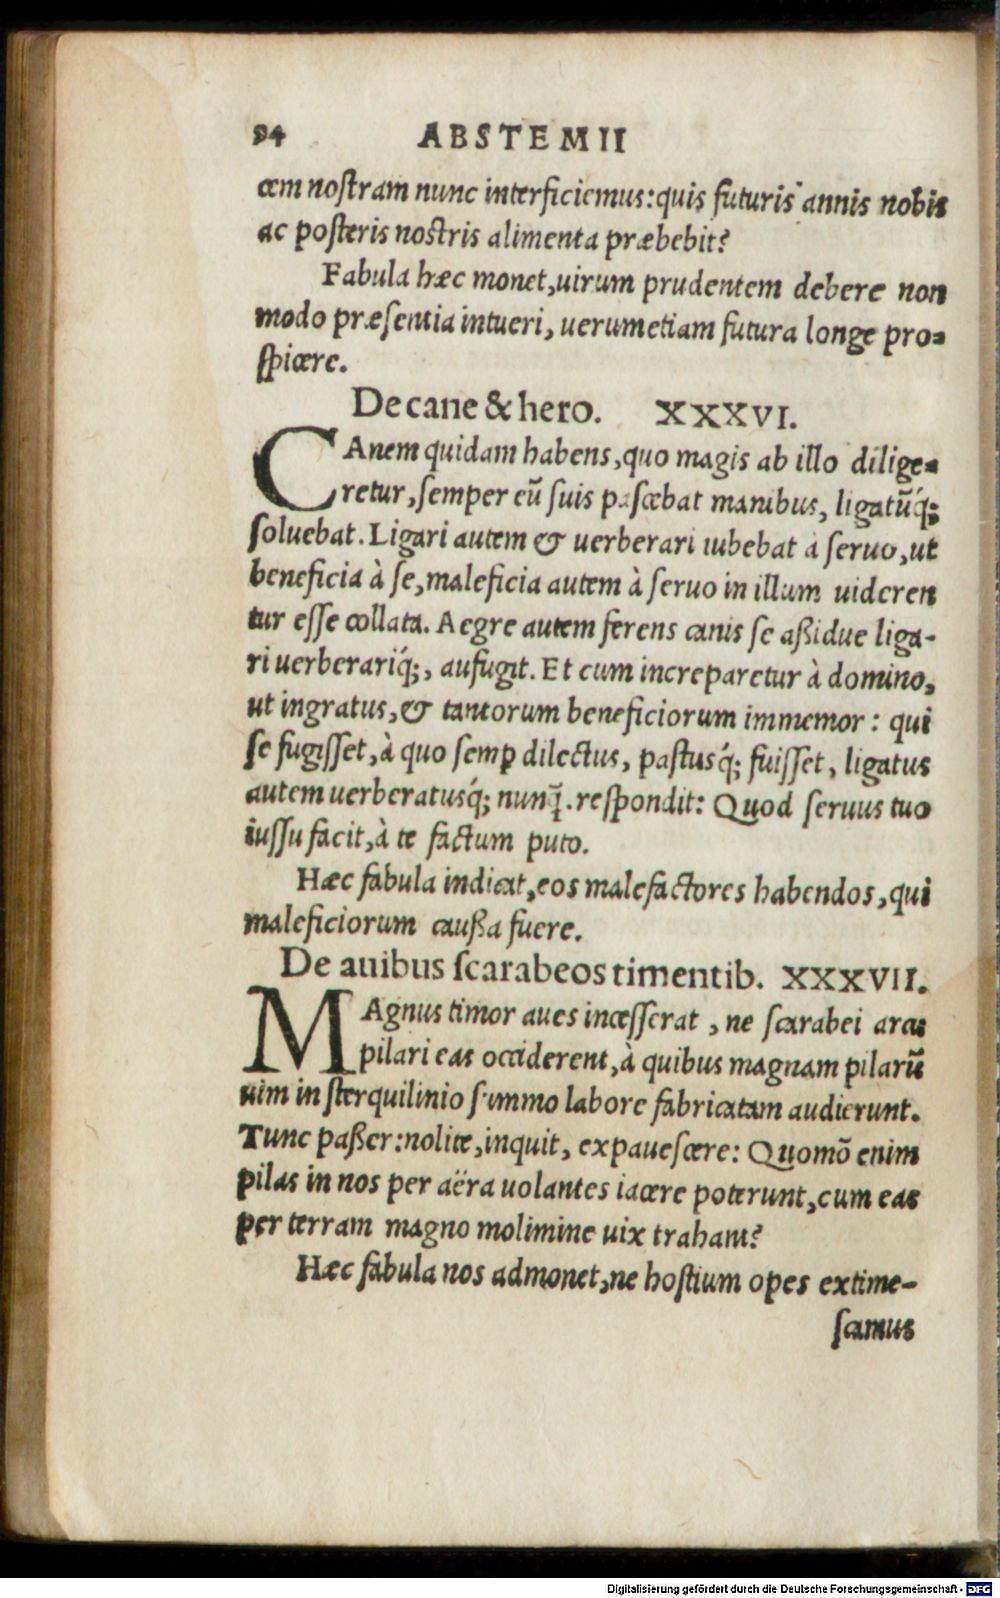 94 ABSTEMII
cem nostram nunc interficiemus: quis futuris annis nobis
ac posteris nostris alimenta præbebit?
Fabula hæc monet, uirum prudentem debere non
modo præsentia intueri, uerumetiam futura longe pro-
spicere.
De cane & hero. XXXVI.
CAnem quidam habens, quo magis ab illo dilige-
retur, semper eũ suis pascebat manibus, ligatũq́;
soluebat. Ligari autem & uerberari iubebat à seruo, ut
beneficia à se, maleficia autem à seruo in illum uideren
tur esse collata. Aegre autem ferens canis se aßidue liga-
ri uerberariq́;, aufugit. Et cum increparetur à domino,
ut ingratus, & tantorum beneficiorum immemor: qui
se fugisset, à quo semꝑ dilectus, pastusq́; fuisset, ligatus
autem uerberatusq́; nunq̃. respondit: Quod seruus tuo
iussu facit, à te factum puto.
Hæc fabula indicat, eos malefactores habendos, qui
maleficiorum caußa fuere.
De auibus scarabeos timentib. XXXVII.
MAgnus timor aues incesserat, ne scarabei arcu
pilari eas occiderent, à quibus magnam pilarũ
uim in sterquilinio summo labore fabricatam audierunt.
Tunc paßer: nolite, inquit, expauescere: Quomõ enim
pilas in nos per aëra uolantes iacere poterunt, cum eas
per terram magno molimine uix trahant?
Hæc fabula nos admonet, ne hostium opes extime-
scamus
Digitalisierung gefördert durch die Deutsche Forschungsgemeinschaft - DFG